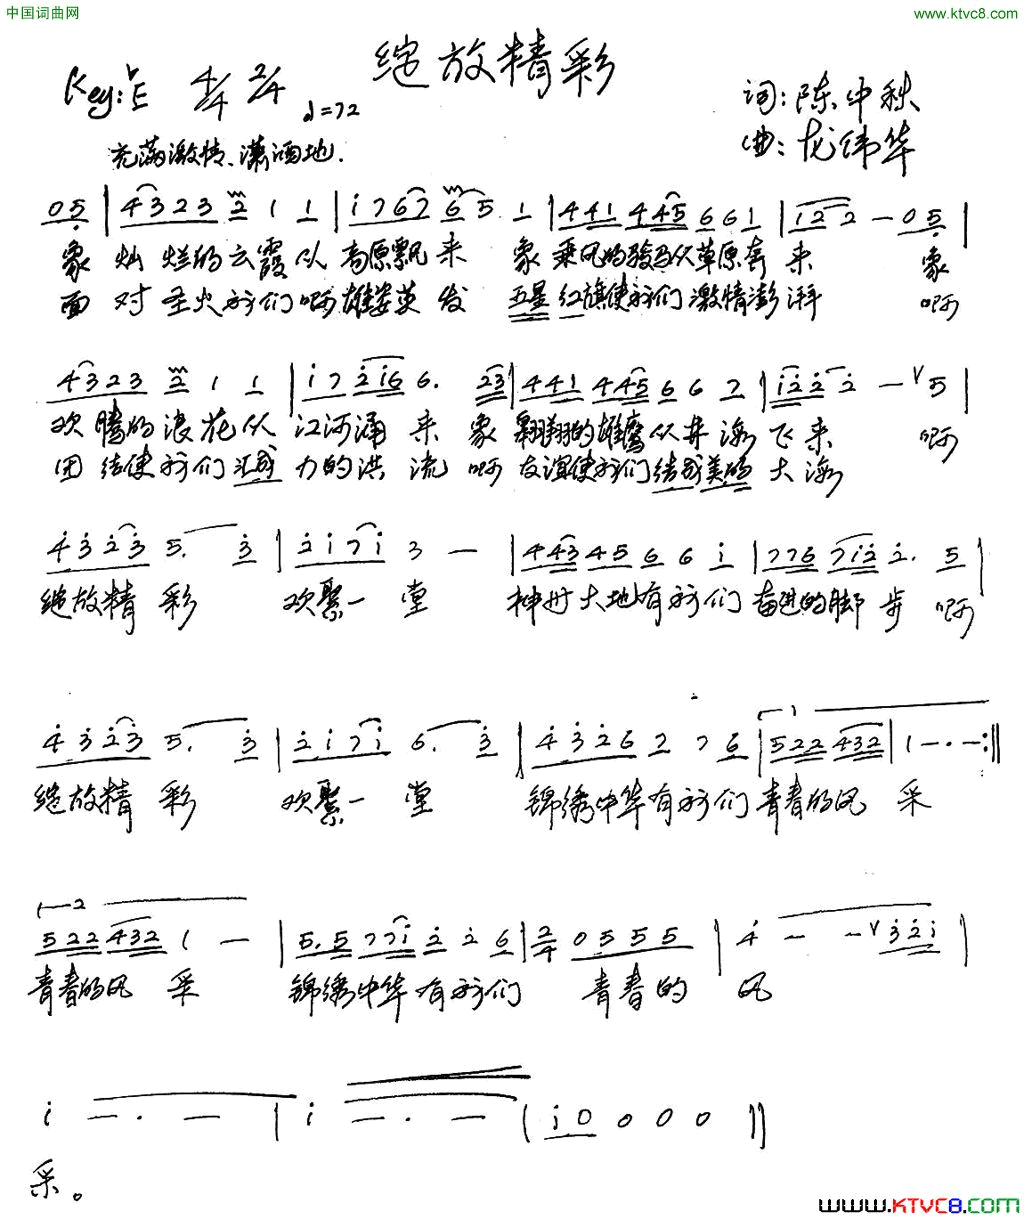 中国词曲网
www.ktvc8.com
绽放精彩
Key:♭E 4/4 2/4 ♩=72
词:陈中秋
曲:龙纬华
充满激情、潇洒地.
05 | 4323 2 1 1 | i767 65. 1 | 441 445 6 61 | i22 — 05 |
象 灿烂的云霞从高原飘来 象乘风的骏马从草原奔来 象
面对圣火我们啊雄姿英发 五星红旗使我们激情澎湃 啊
4323 2 1 1 | i7 2i6 6. 23 | 441 445 6 6 7 | i22 2 — ∨5 |
欢腾的浪花从江河涌来 象翱翔的雄鹰从 海飞来 啊
团结使我们汇成力的洪流 啊友谊使我们结成美的大海
4323 5. 3 | 2i7i 3 — | 443 45 6 6 i | 776 7i2 2. 5 |
绽放精彩 欢聚一堂 神州大地有我们奋进的脚步 啊
4323 5. 3 | 2i7i 6. 3 | 4326 7 7 6 | 1 522 432 | 1 — · — :||
绽放精彩 欢聚一堂 锦绣中华有我们青春的风采
2
522 432 1 — | 5.5 77i 2 2 6 | 2/4 0555 | 4 — — ∨32i |
青春的风采 锦绣中华有我们 青春的风
i — · — | i — · — | i0 0 0 0 ||
采。
www.KTVC8.com